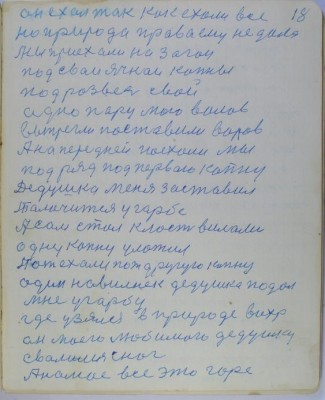 он ехал так как ехали все 18
но природа права ему не дала
Мы приехали на загон
под свал ячной копны
под розвел свой
одно пару мою волов
Выпрегли поставили
А на передней поехали мы
под ряд под первою копну
Дедушка меня заставил
Талачится у гарбе
А сам стал класть вилами
одну копну уложил
Поехали под другую копну
один навилнек дедушка подал
мне у гарбу
где узялся в природе вихр
он моего любимого дедушку
свалил с ног
А на мое все это горе